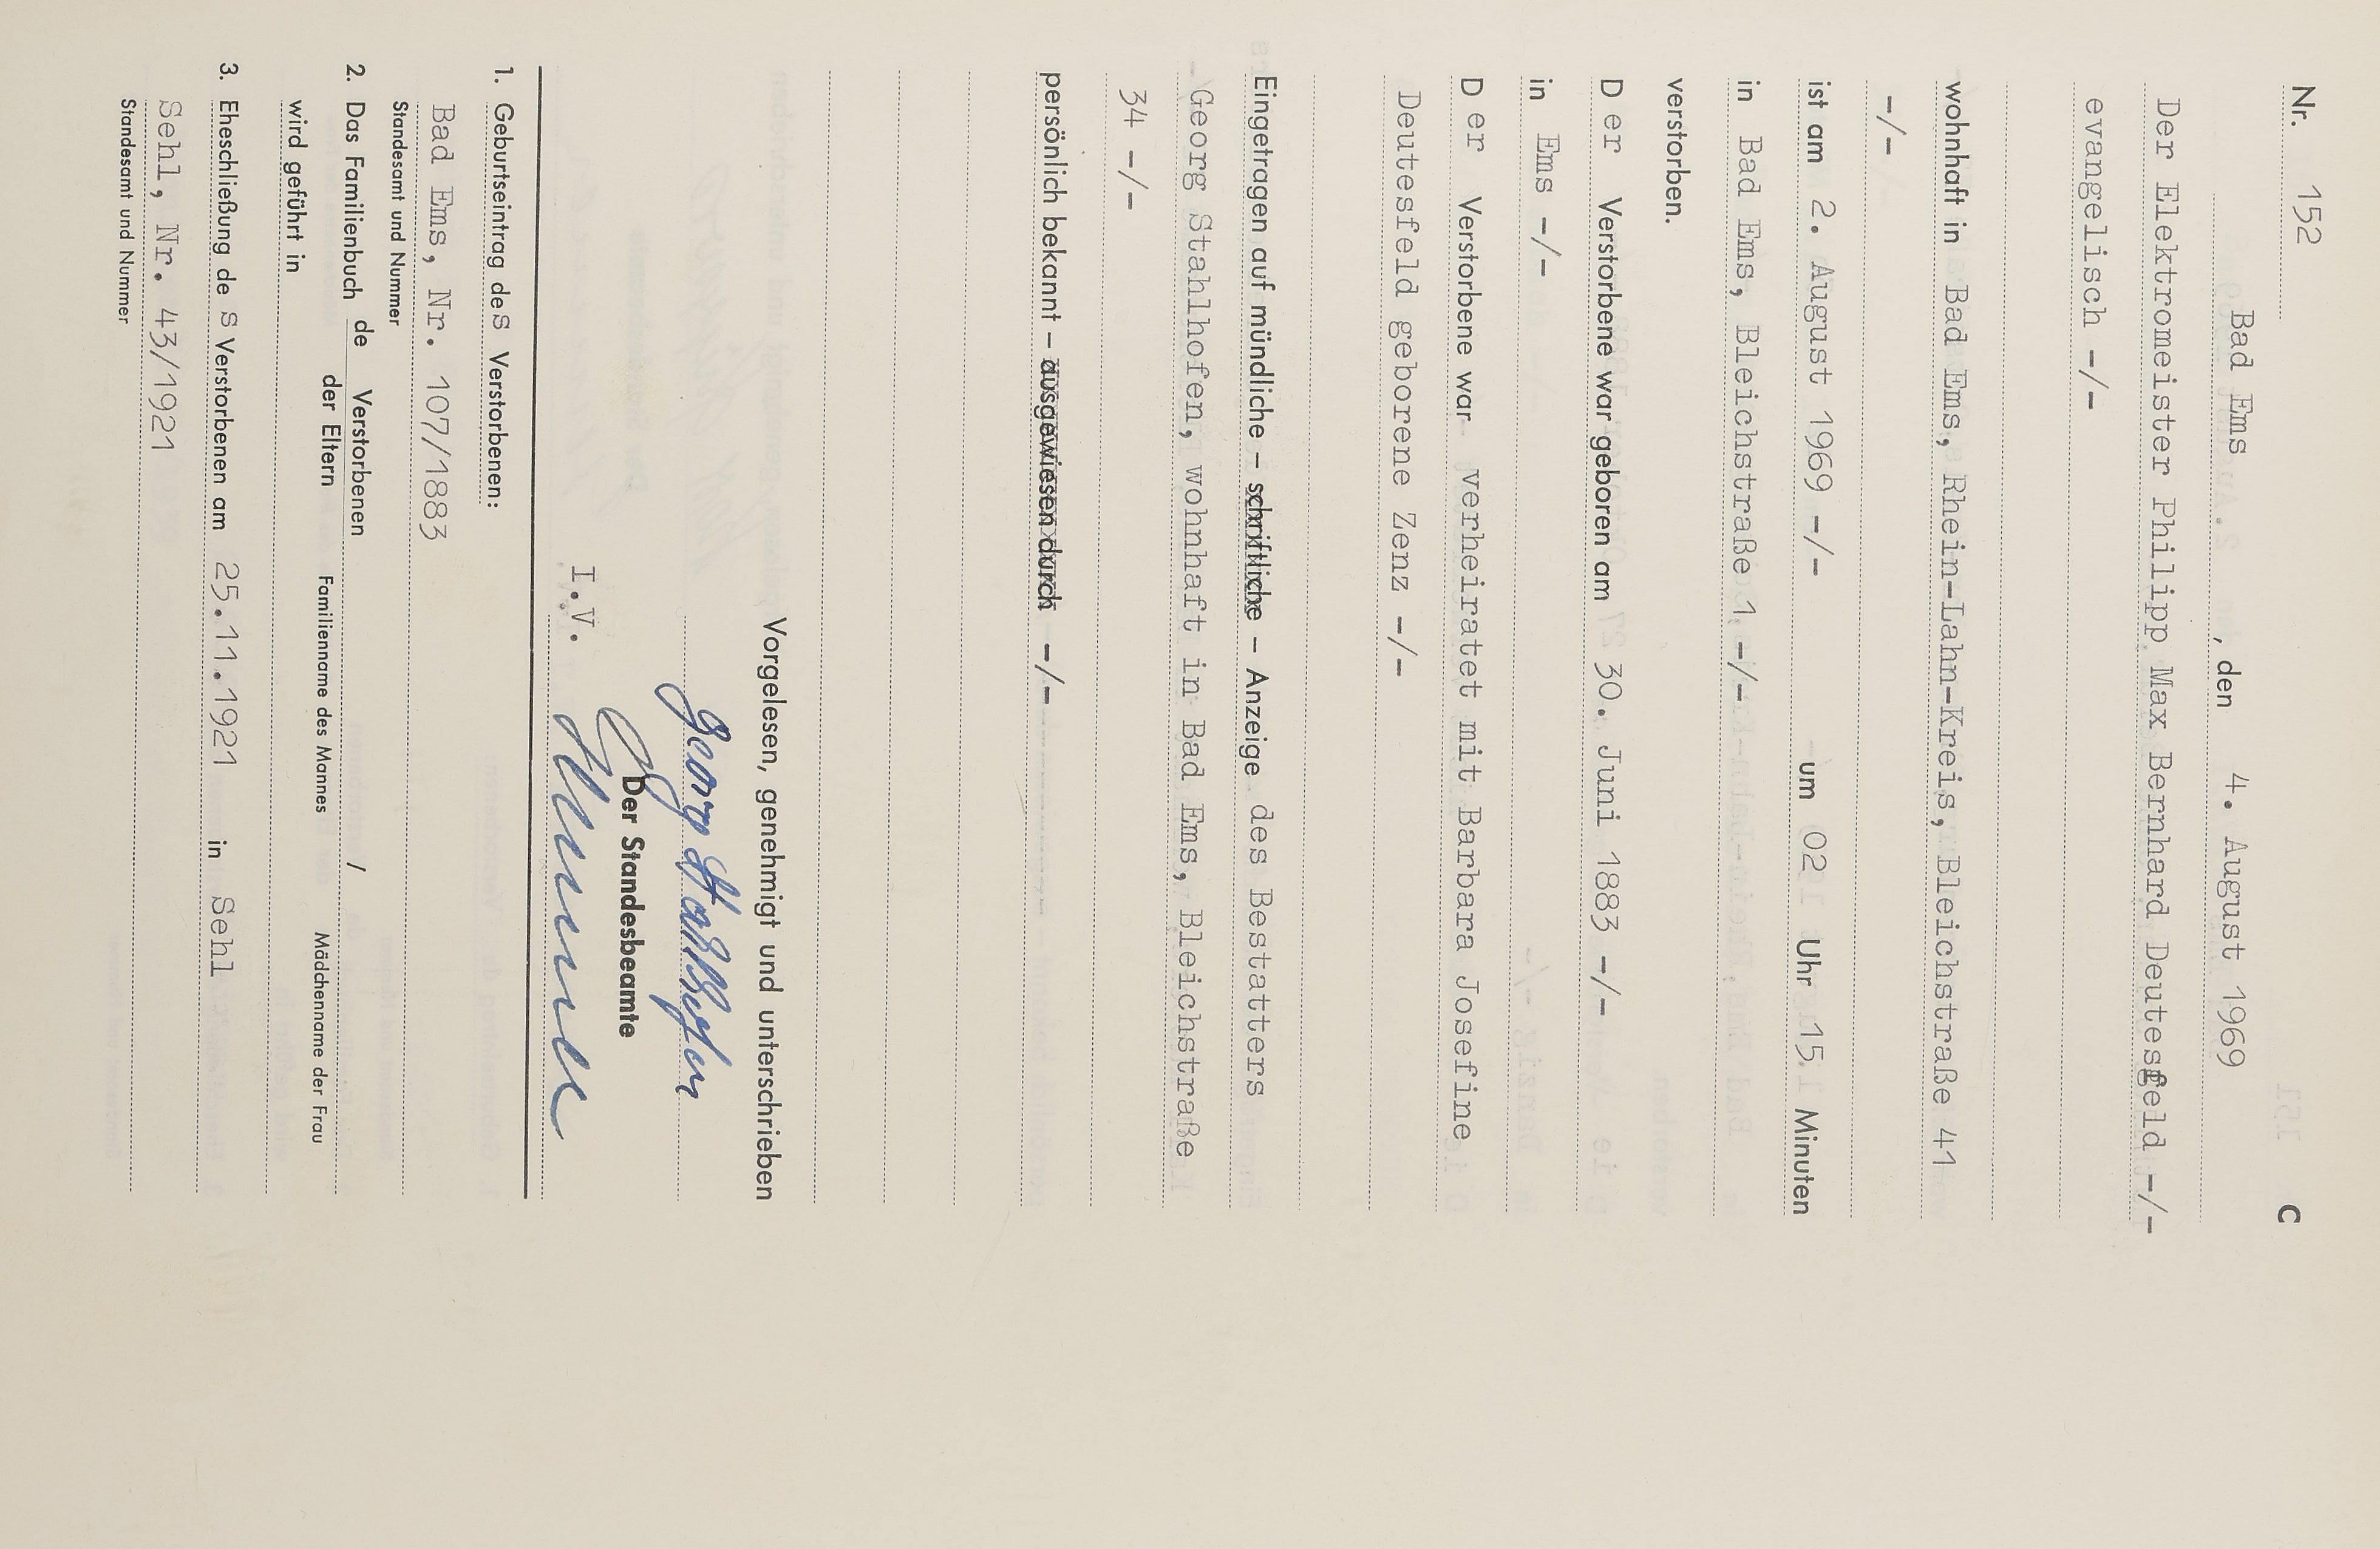 Nr. 152 C
Bad Ems, den 4. August 1969
Der Elektromeister Philipp Max Bernhard Deutesfeld -/-
evangelisch -/-
wohnhaft in Bad Ems, Rhein-Lahn-Kreis, Bleichstraße 41
-/-
ist am 2. August 1969 -/- um 02 Uhr 15 Minuten
in Bad Ems, Bleichstraße 1 -/-
verstorben.
Der Verstorbene war geboren am 30. Juni 1883 -/-
in Ems -/-
Der Verstorbene war verheiratet mit Barbara Josefine
Deutesfeld geborene Zenz -/-
Eingetragen auf mündliche - schriftliche - Anzeige des Bestatters
Georg Stahlhofen, wohnhaft in Bad Ems, Bleichstraße
34 -/-
persönlich bekannt - ausgewiesen durch -/-
Vorgelesen, genehmigt und unterschrieben
Georg Stahlhofen
Der Standesbeamte
I.V.
1. Geburtseintrag des Verstorbenen:
Bad Ems, Nr. 107/1883
Standesamt und Nummer
2. Das Familienbuch de Verstorbenen /
der Eltern Familienname des Mannes Mädchenname der Frau
wird geführt in
3. Eheschließung des Verstorbenen am 25.11.1921 in Sehl
Sehl, Nr. 43/1921
Standesamt und Nummer